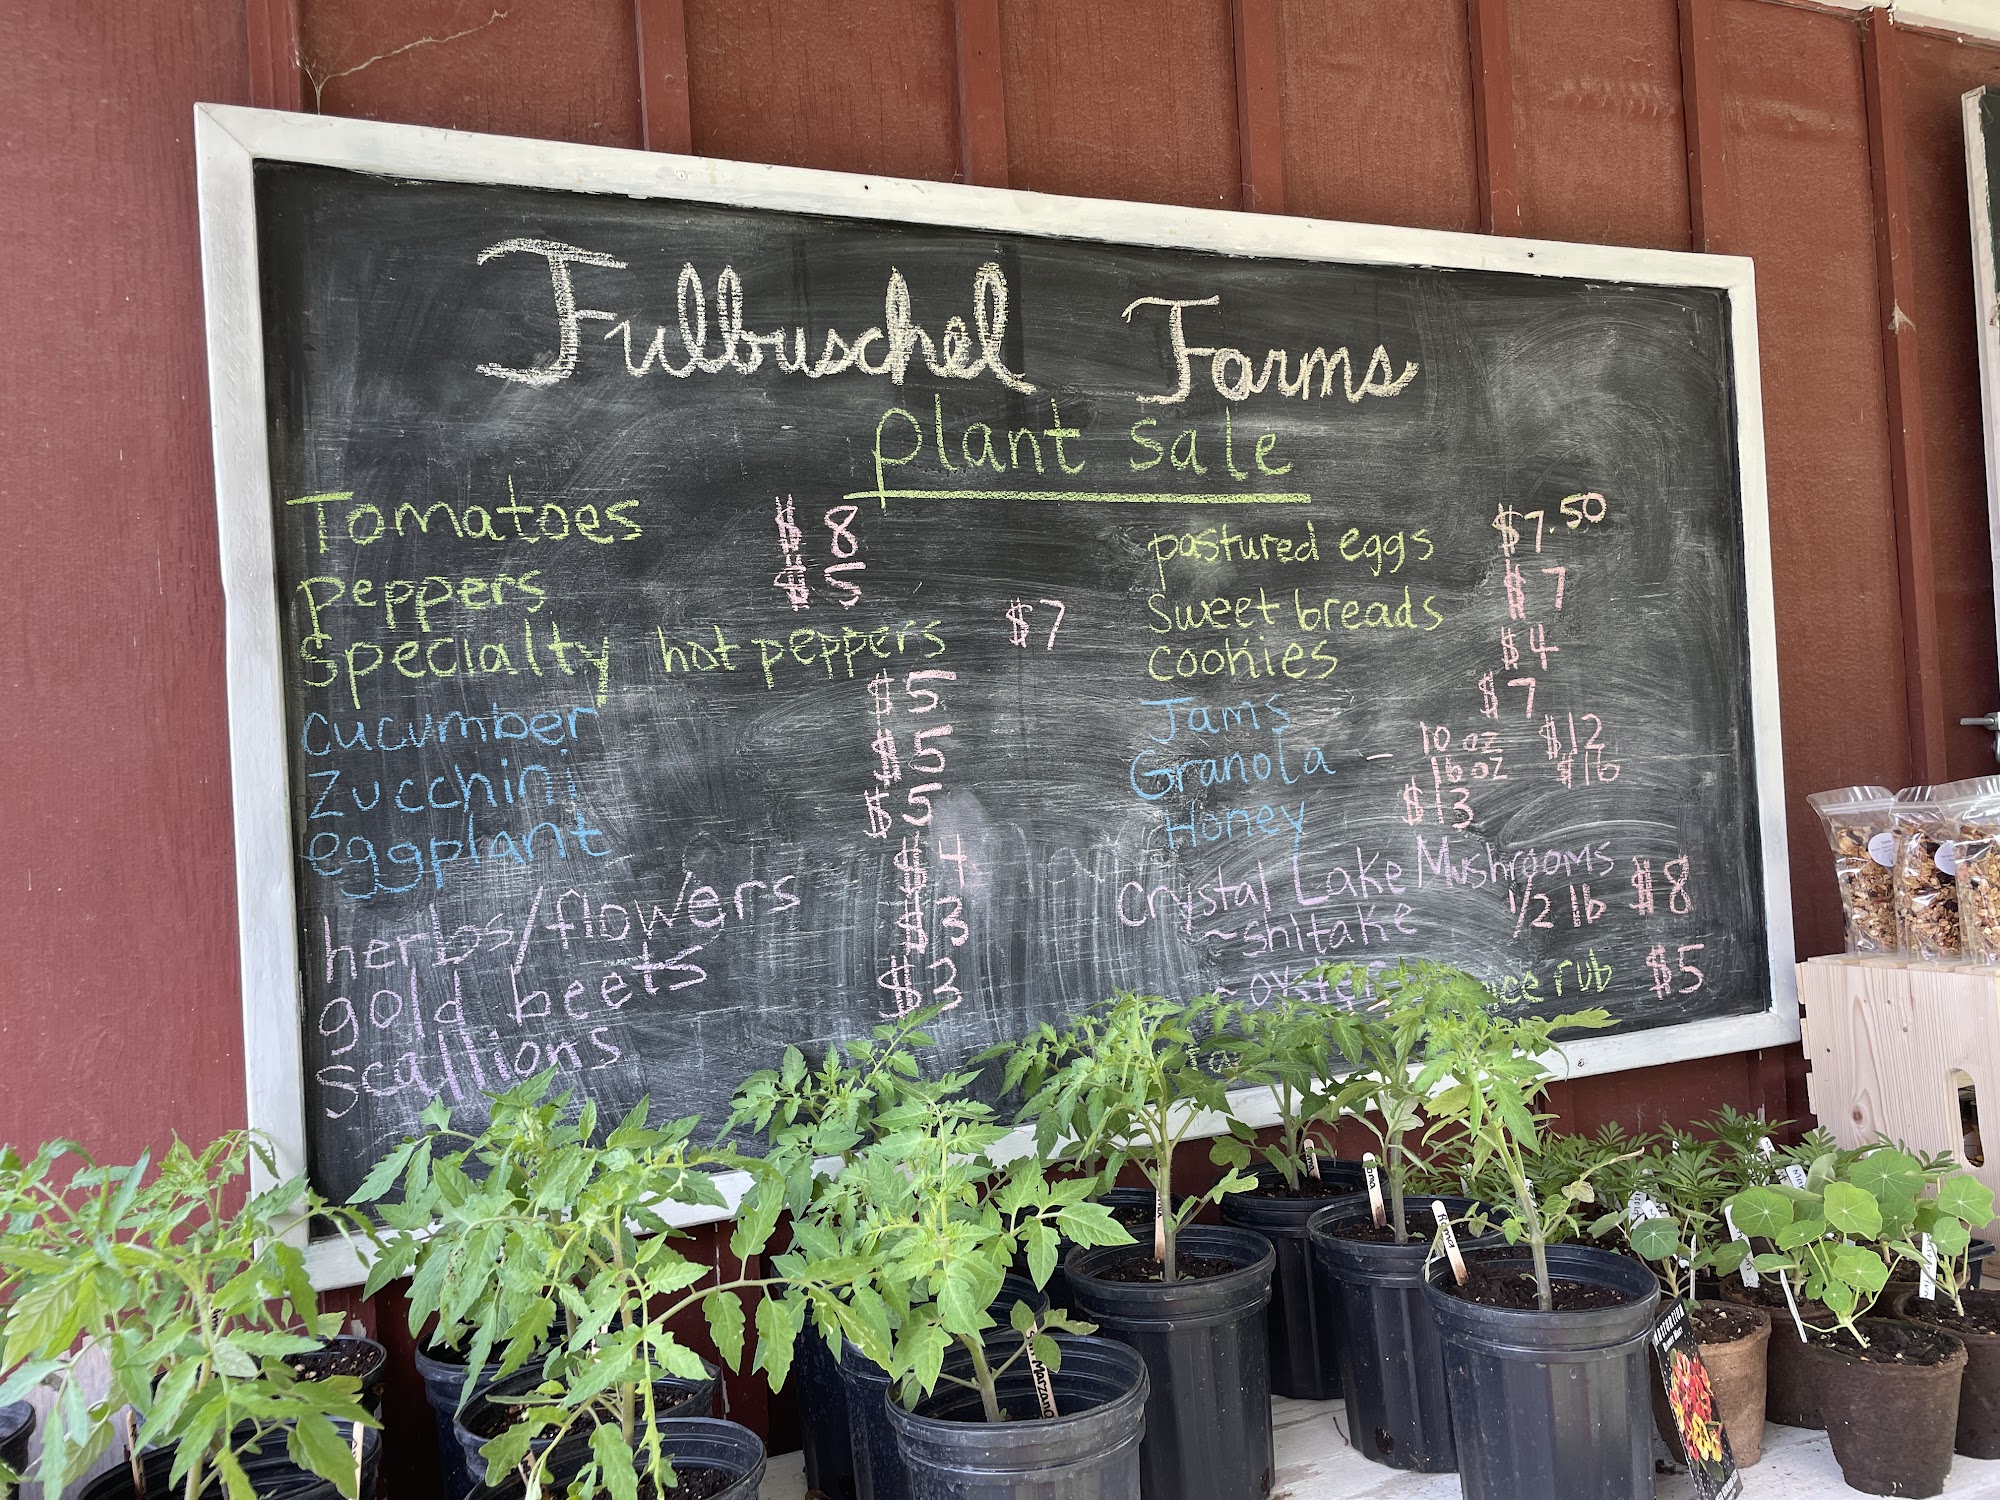 Fulbuschel Farms
plant sale
Tomatoes $8
peppers $5
specialty hot peppers $7
cucumber $5
zucchini $5
eggplant $5
herbs/flowers $4
gold beets $3
scallions $3
pastured eggs $7.50
Sweet breads $7
cookies $4
Jams $7
Granola - 10 oz $12
16 oz $16
Honey $13
Crystal Lake Mushrooms
~shitake 1/2 lb $8
~oyster
rub $5
Roma
San Marzano